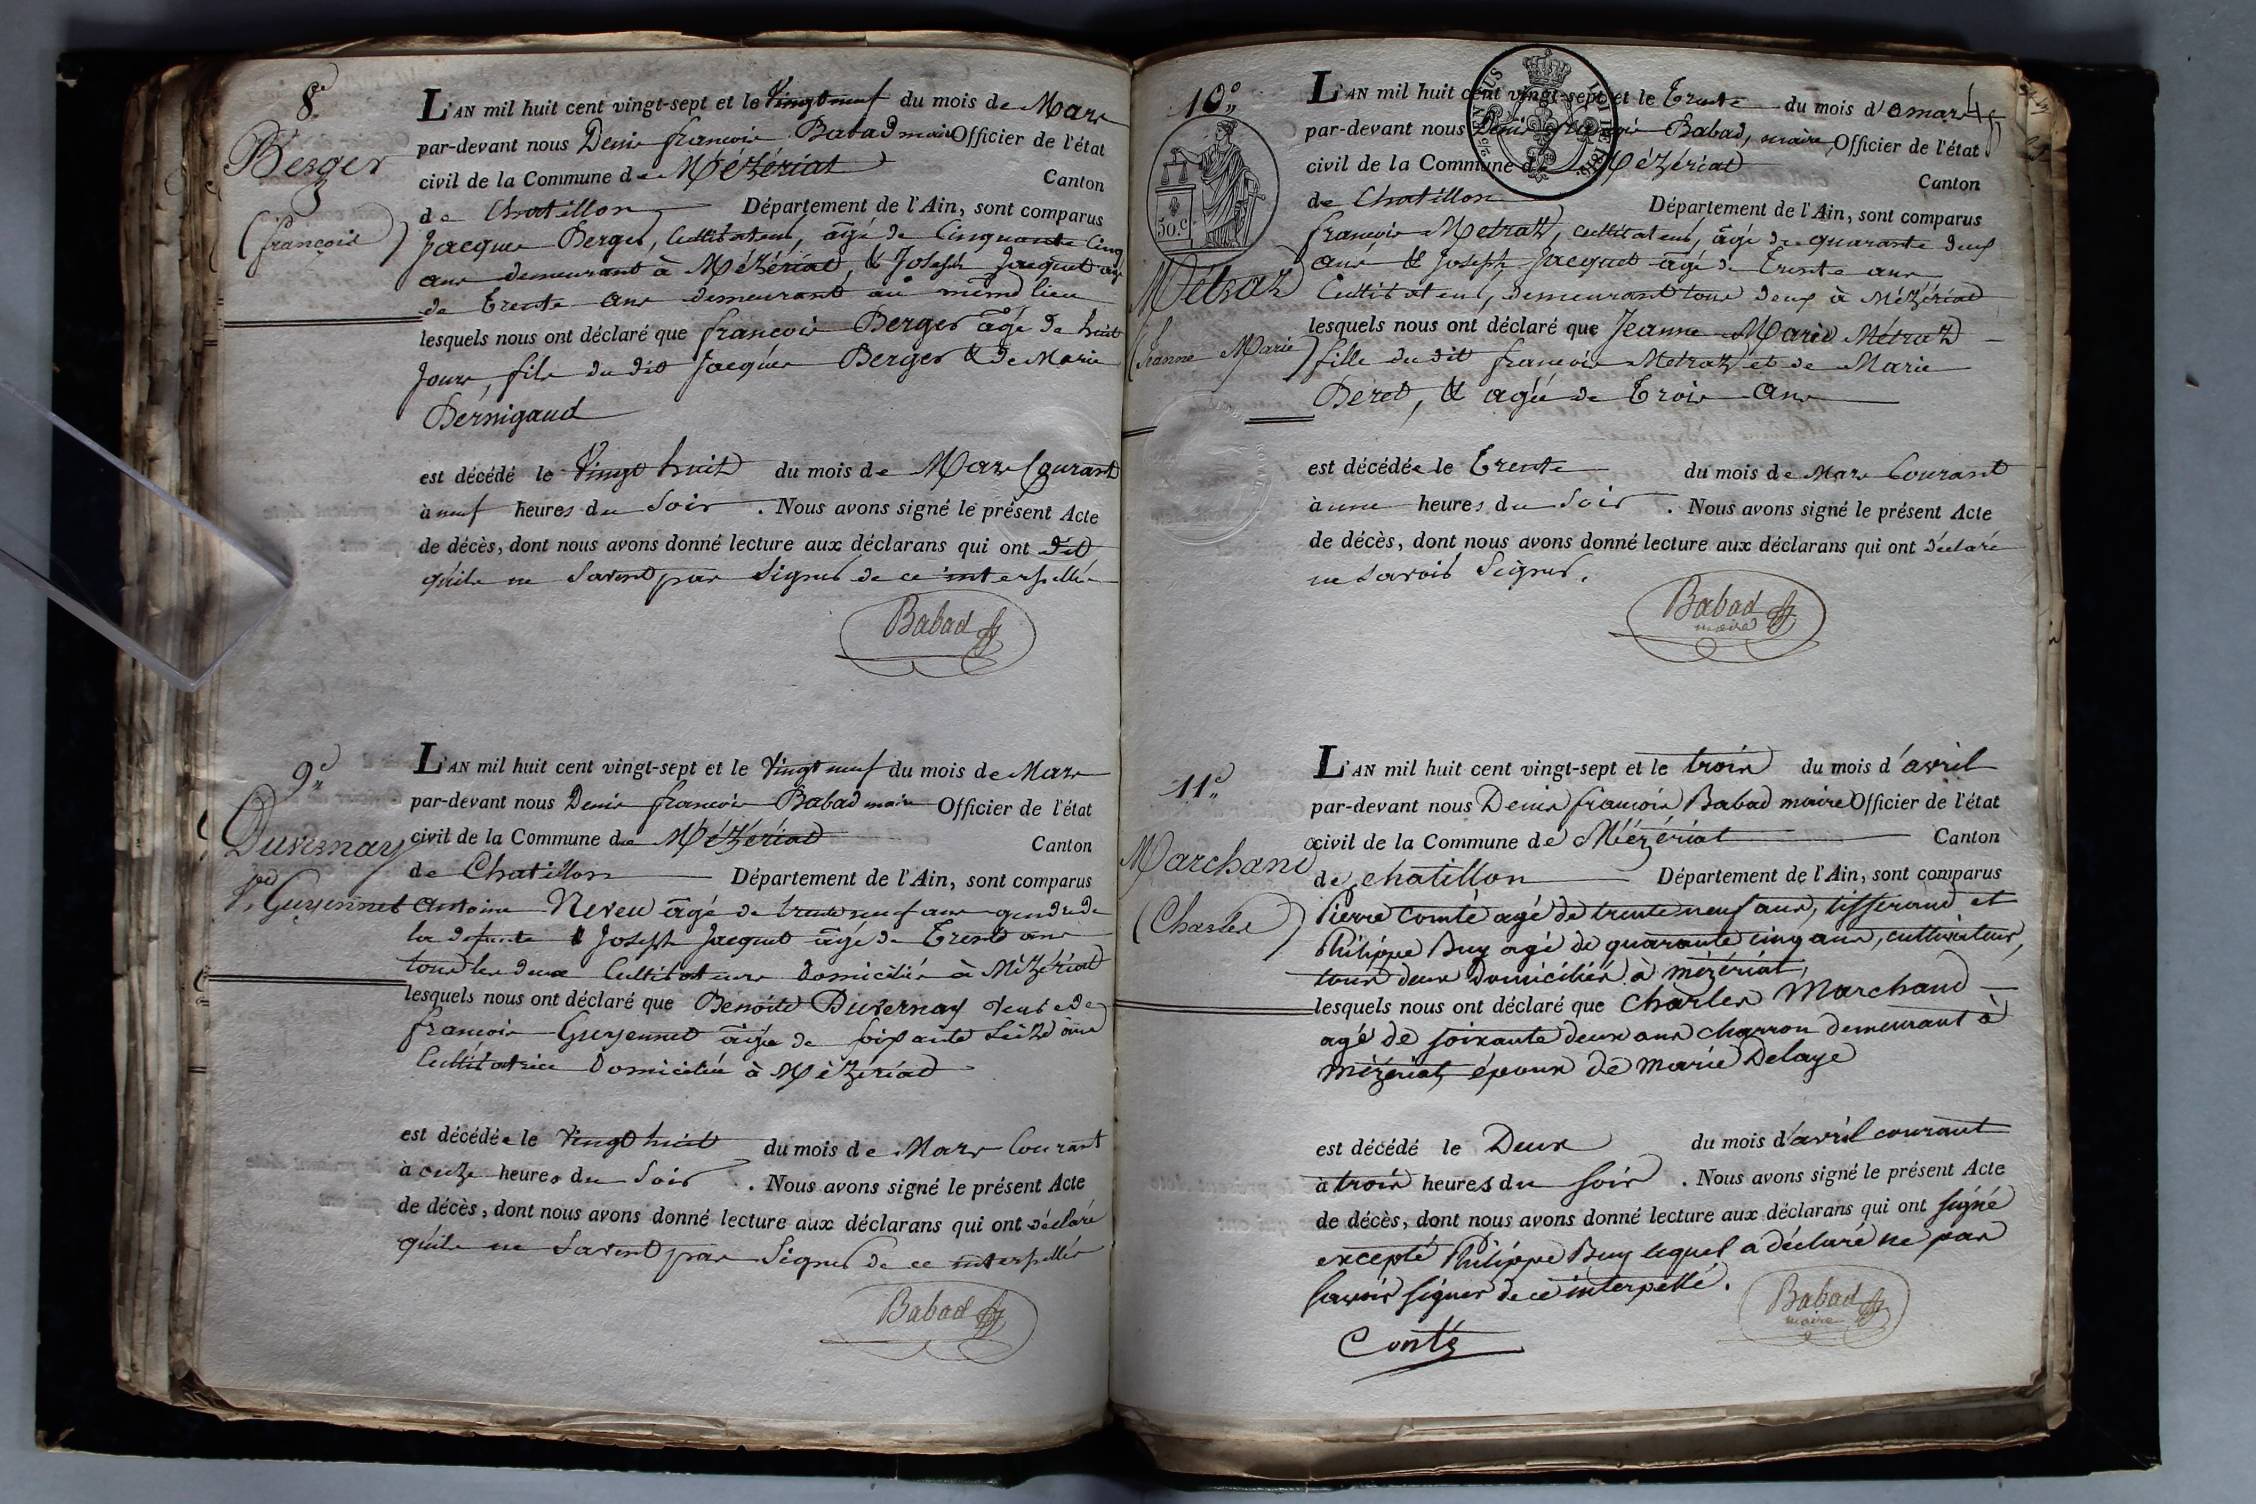 8.e
Berger
(françois)
L'AN mil huit cent vingt-sept et le Vingt neuf du mois de Mars
par-devant nous Denis françois Babad maire Officier de l'état
civil de la Commune de Mézériat Canton
de Chatillon Département de l'Ain, sont comparus
Jacques Berger, Cultivateur, âgé de Cinquante Cinq
ans demeurant à Mézériat, & Joseph Jacquet agé
de Trente ans demeurant au même lieu
lesquels nous ont déclaré que françois Berger âgé de huit
Jours, fils du dit Jacques Berger & de Marie
Bernigaud
est décédé le Vingt huit du mois de Mars Courant
à neuf heures du Soir . Nous avons signé le présent Acte
de décès, dont nous avons donné lecture aux déclarans qui ont dit
qu'ils ne Savent pas Signer de ce interpellés
Babad
9.e
Duvernay
ve. Guyennet
L'AN mil huit cent vingt-sept et le Vingt neuf du mois de Mars
par-devant nous Denis françois Babad maire Officier de l'état
civil de la Commune de Mézériat Canton
de Chatillon Département de l'Ain, sont comparus
antoine Neveu âgé de trente neuf ans gendre de
la defunte & Joseph Jacquet âgé de Trente ans
tous les deux Cultivateurs Domiciliés à Mézériat
lesquels nous ont déclaré que Benoite Duvernay veuve de
françois Guyennet âgée de soixante Seize ans
Cultivatrice Domiciliée à Mézériat
est décédée le Vingt huit du mois de Mars Courant
à onze heures du Soir . Nous avons signé le présent Acte
de décès, dont nous avons donné lecture aux déclarans qui ont déclaré
qu'ils ne Savent pas Signer de ce interpellés
Babad
10.e
50.c
Métraz
(Jeanne Marie)
L'AN mil huit cent vingt-sept et le Trente du mois d'e mars
par-devant nous Denis françois Babad, maire, Officier de l'état
civil de la Commune de Mézériat Canton
de Chatillon Département de l'Ain, sont comparus
françois Metraz, cultivateur, âgé de quarante deux
ans & Joseph Jacquet âgé de Trente ans
Cultivateur, demeurant tous deux à Mézériat
lesquels nous ont déclaré que Jeanne Marie Métraz
fille du dit françois Metraz et de Marie
Beret, & agée de Trois ans
est décédée le Trente du mois de Mars Courant
à une heures du Soir . Nous avons signé le présent Acte
de décès, dont nous avons donné lecture aux déclarans qui ont déclaré
ne savoir Signer.
Babad
maire
11.e
Marchand
(Charles)
L'AN mil huit cent vingt-sept et le trois du mois d'avril
par-devant nous Denis françois Babad maire Officier de l'état
civil de la Commune de Mézériat Canton
de chatillon Département de l'Ain, sont comparus
Pierre Comté agé de trente neuf ans, tisserand et
Philippe Buy agé de quarante cinq ans, cultivateur,
tous deux domiciliés à mézériat,
lesquels nous ont déclaré que Charles Marchand
agé de soixante deux ans charron demeurant à
mézériat, époux de marie Delaye
est décédé le Deux du mois d'avril courant
à trois heures du soir . Nous avons signé le présent Acte
de décès, dont nous avons donné lecture aux déclarans qui ont signé
excepté Philippe Buy lequel a déclaré ne pas
savoir signer de ce interpellé.
Babad
maire
Conté